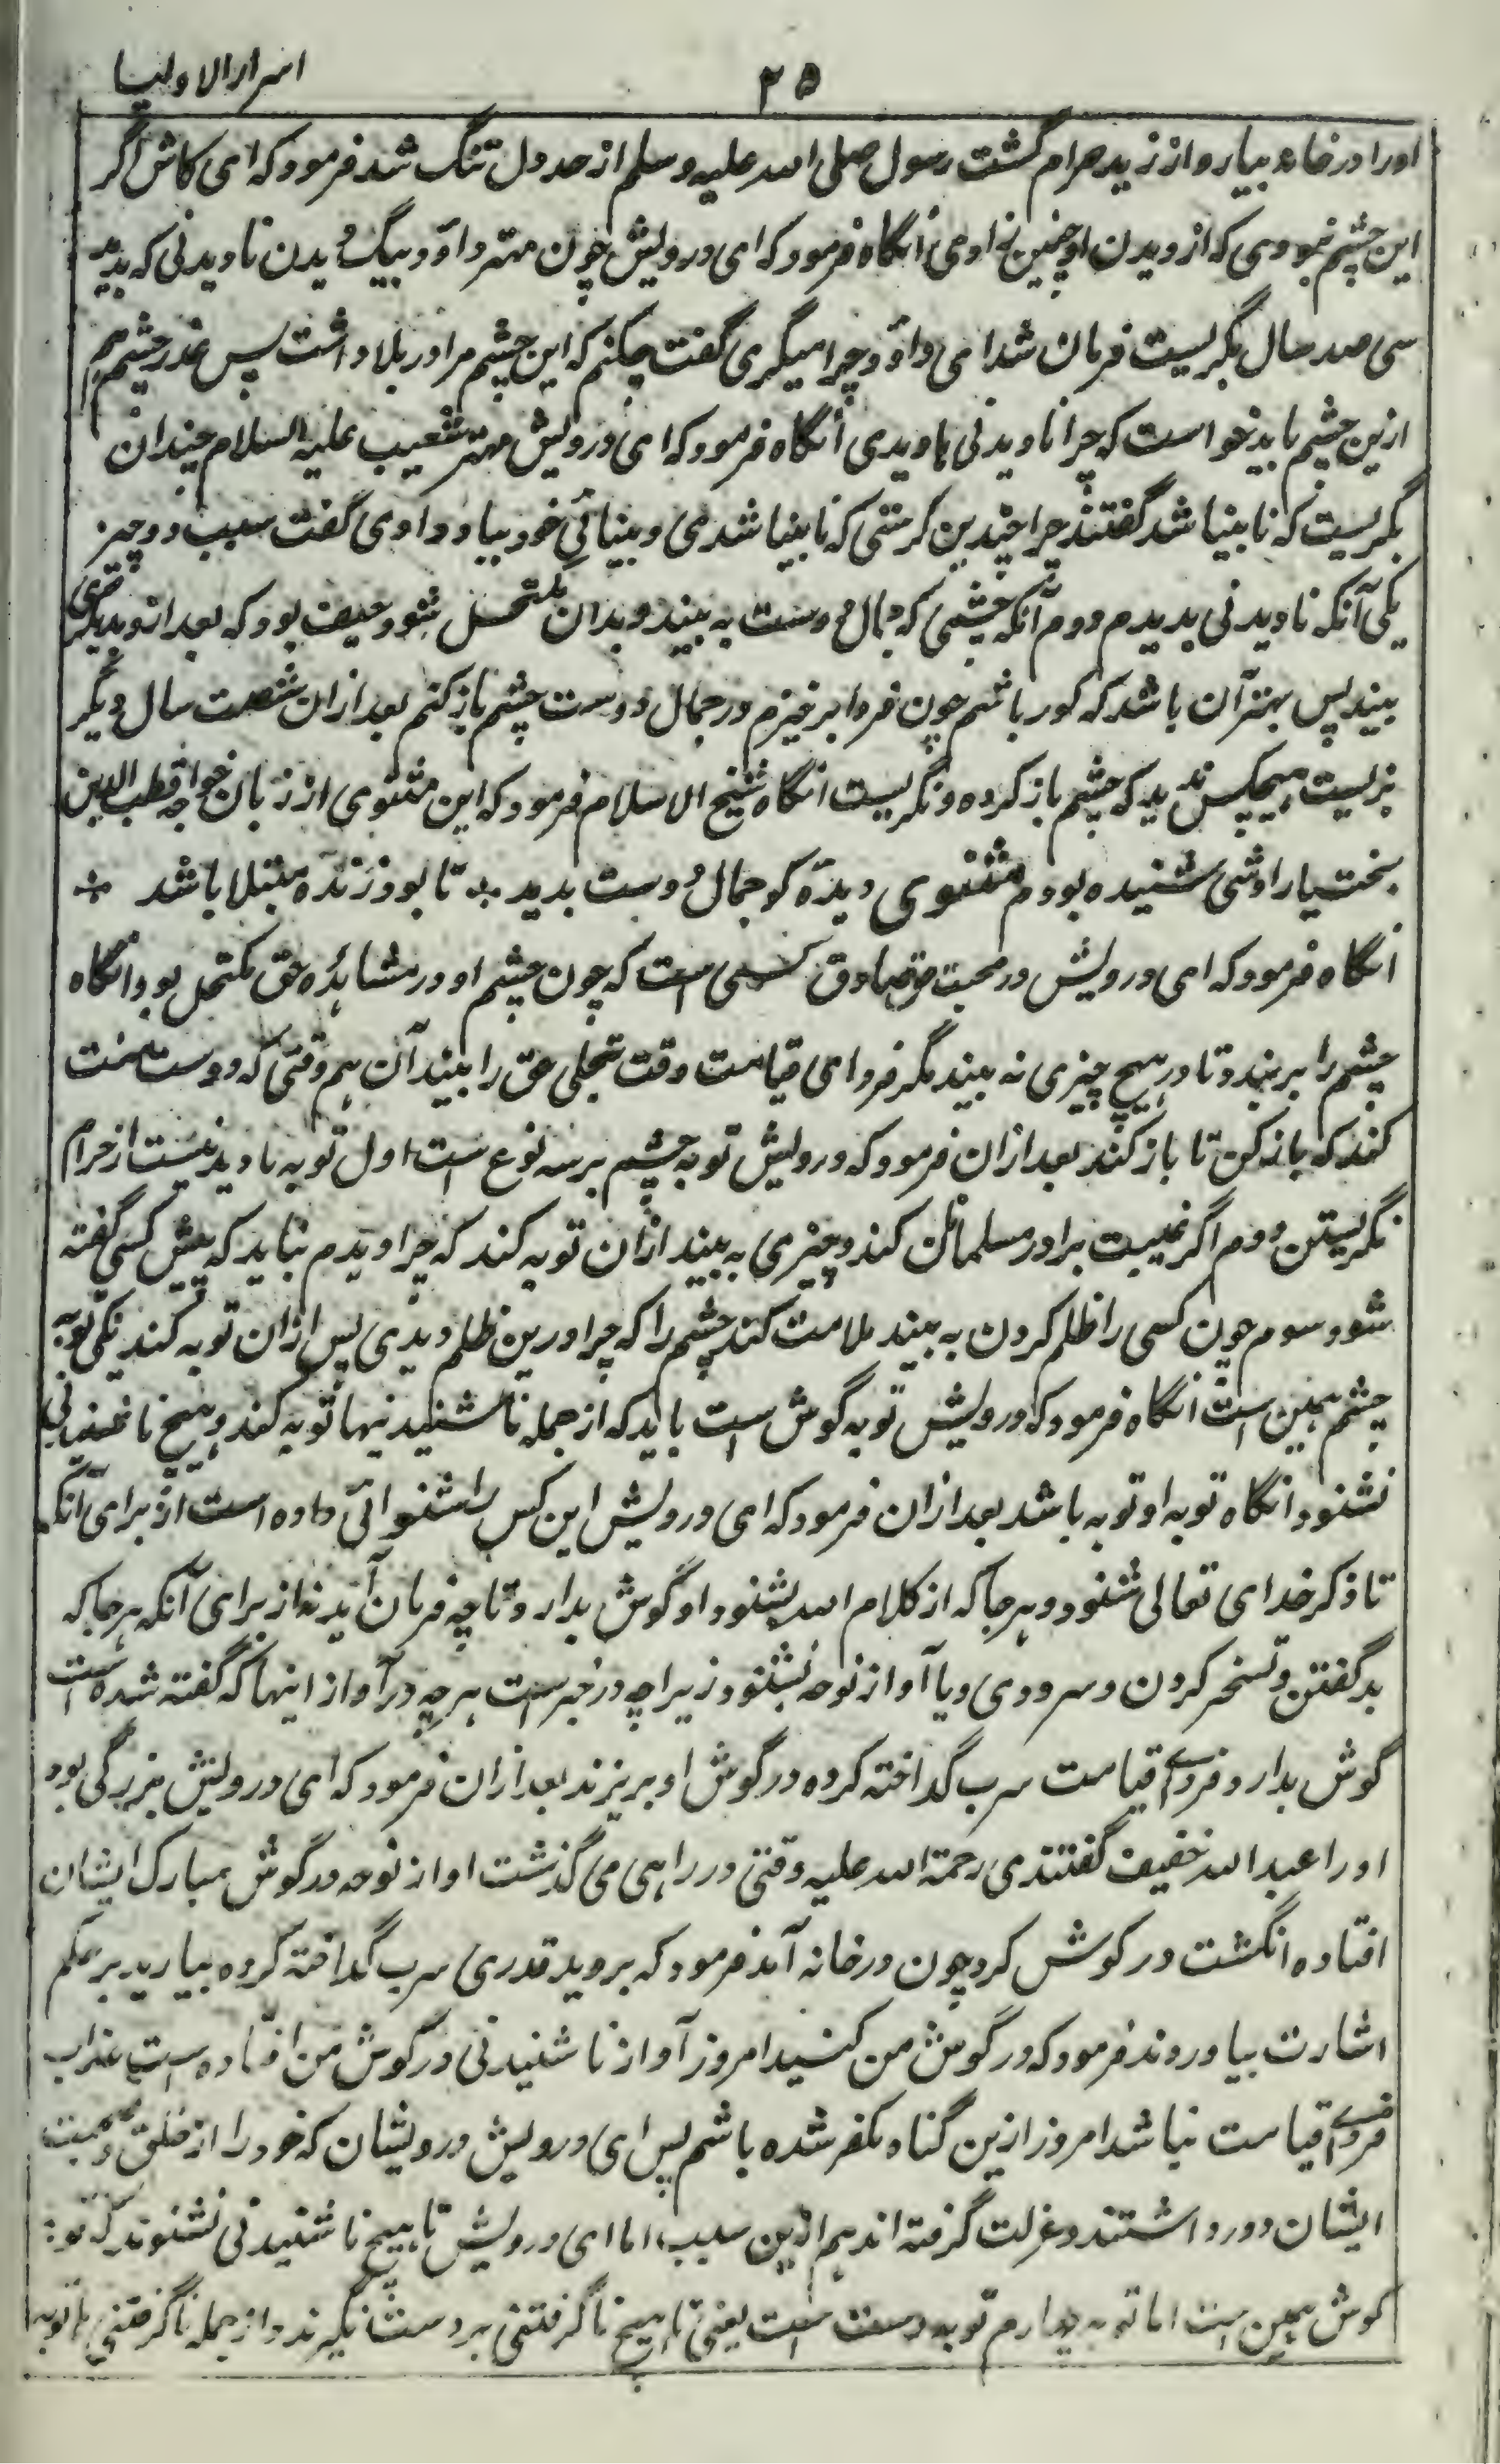 اسرار الاولیا
۲۵
اورا در خانه بیار و از زید حرام گشت رسول صلی الله علیه و سلم از حد دل تنگ شد فرمود که ای کاش اگر
این چشم نبودی که از دیدن او چنین نخ اومی، آنگاه فرمود که ای درویش چون مهتر داؤد بیک دیدن نادیدنی که بدید
سی صد سال بگریست فرمان شد ای داؤد چرا میگری گفت چکنم که این چشم مرا در بلا داشت پس عذر چشم هم
ازین چشم باید خواست که چرا نادیدنی بادیدی آنگاه فرمود که ای درویش مهتر شعیب علیه السلام چندان
بگریست که نابینا شد گفتند چرا چندین گرستی که نابینا شدی و بینائی خود بباد دادی گفت سبب دو چیز
یکی آنکه نادیدنی بدیدم دوم آنکه چشمی که جمال دوست به بیند و بدان مکتحل شود حیف بود که بعد ازو دیگری
بیند پس بهتر آن باشد که کور باشم چون فردا برخیزم در جمال دوست چشم باز کنم بعد ازان شصت سال دیگر
بزیست هیچکس ندید که چشم باز کرده و نگریست انگاه شیخ الاسلام فرمود که این مثنوی از زبان خواجه قطب الدین
بخت یار اوشی شنیده بودم مثنوی دیدۀ کو جمال دوست بدید ؞ تا بود زنده مبتلا باشد ؞
آنگاه فرمود که ای درویش در محبت حق صادق کسی است که چون چشم او در مشاهدۀ حق مکتحل بود آنگاه
چشم را بر بندد تا در هیچ چیزی نه بیند مگر فردای قیامت وقت تجلی حق را بیند آن هم وقتی که دوست منت
کند که باز کن تا باز کند بعد ازان فرمود که درویش توبه چشم بر سه نوع است اول توبه نادیدنیست از حرام
نگریستن دوم اگر غیبت برادر مسلمانان کند و چیزی به بیند ازان توبه کند که چرا دیدم نباید که پیش کسی گفته
شود سوم چون کسی را ظلم کردن به بیند ملامت کند چشم را که چرا درین ظلم دیدی پس ازان توبه کند یکی توبۀ
چشم همین است انگاه فرمود که درویش توبه گوش است باید که از جمله ناشنیدنیها توبه کند و هیچ ناشنیدنی
نشنود انگاه توبه او توبه باشد بعد ازان فرمود که ای درویش این کس را شنوائی داده است از برای آنکه
تا ذکر خدای تعالی شنود و هر جا که از کلام الله بشنود او گوش بدارد تا چه فرمان آید نه از برای آنکه هر جا که
بد گفتن و تسخر کردن و سرودی و یا آواز نوحه بشنود زیراچه در خبر است هر چه در آواز اینها که گفته شده است
گوش بدارد فردای قیامت سرب گداخته کرده در گوش او بریزند بعد ازان فرمود که ای درویش بزرگی بود
اورا عبد الله خفیف گفتندی رحمة الله علیه وقتی در راهی می گذشت آواز نوحه در گوش مبارک ایشان
افتاده انگشت در گوش کرد چون در خانه آمد فرمود که بروید قدری سرب گداخته کرده بیارید بر حکم
اشارت بیاوردند فرمود که در گوش من کنید امروز آواز ناشنیدنی در گوش من افتاده است عذاب
فردای قیامت نباشد امروز ازین گناه مکفر شده باشم پس ای درویش درویشان که خود را از خلق و صحبت
ایشان دور داشتند و عزلت گرفته اند هم ازین سبب اما ای درویش تا هیچ ناشنیدنی نشنوند که توبۀ
گوش همین است اما توبه چهارم توبه دست است یعنی تا هیچ ناگرفتنی بر دست نگیرند و از جمله ناگرفتنی ها توبه